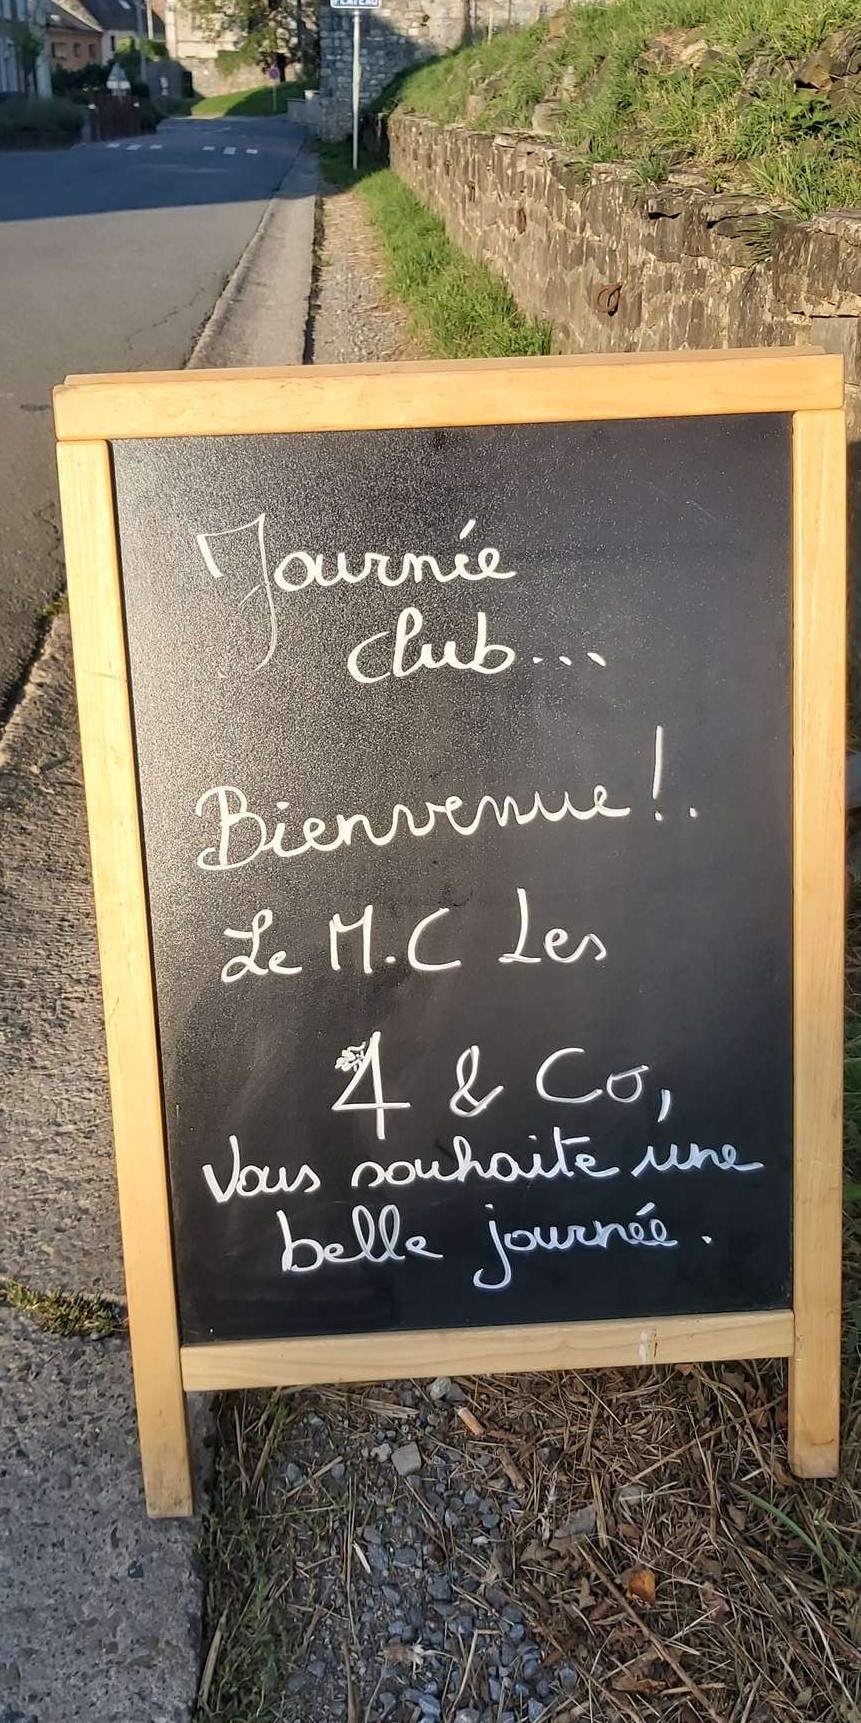 PLATEAU
Journée
club...
Bienvenue !.
Le M.C Les
4 & Co,
Vous souhaite une
belle journée.